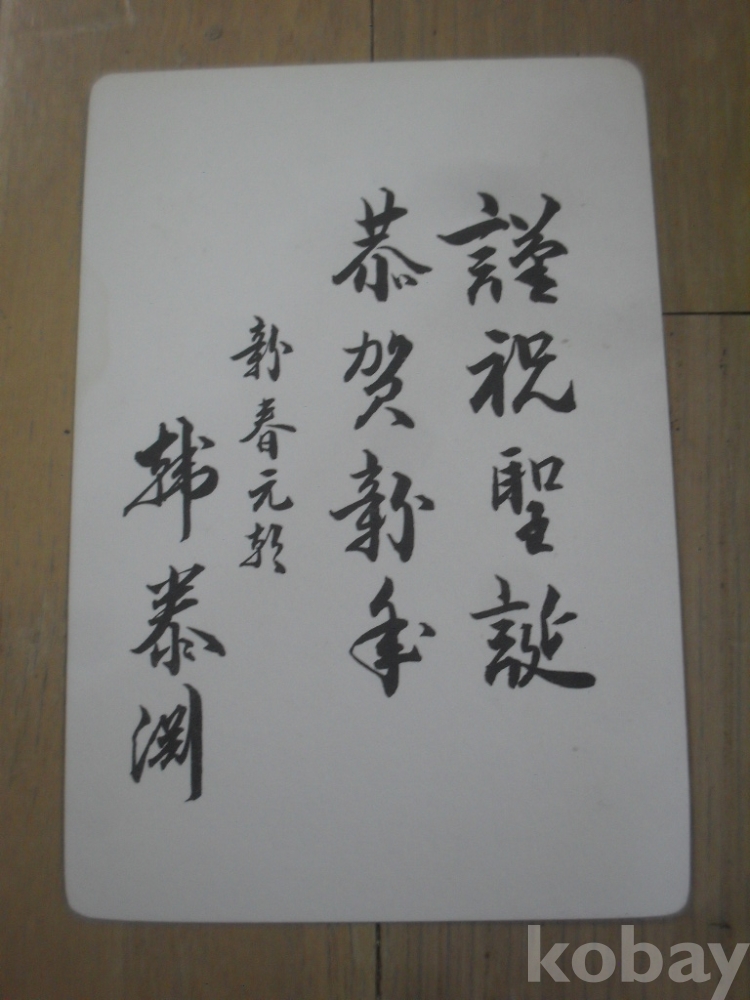 謹祝聖誕
恭賀新年
新春元朝
韓泰淵
kobay